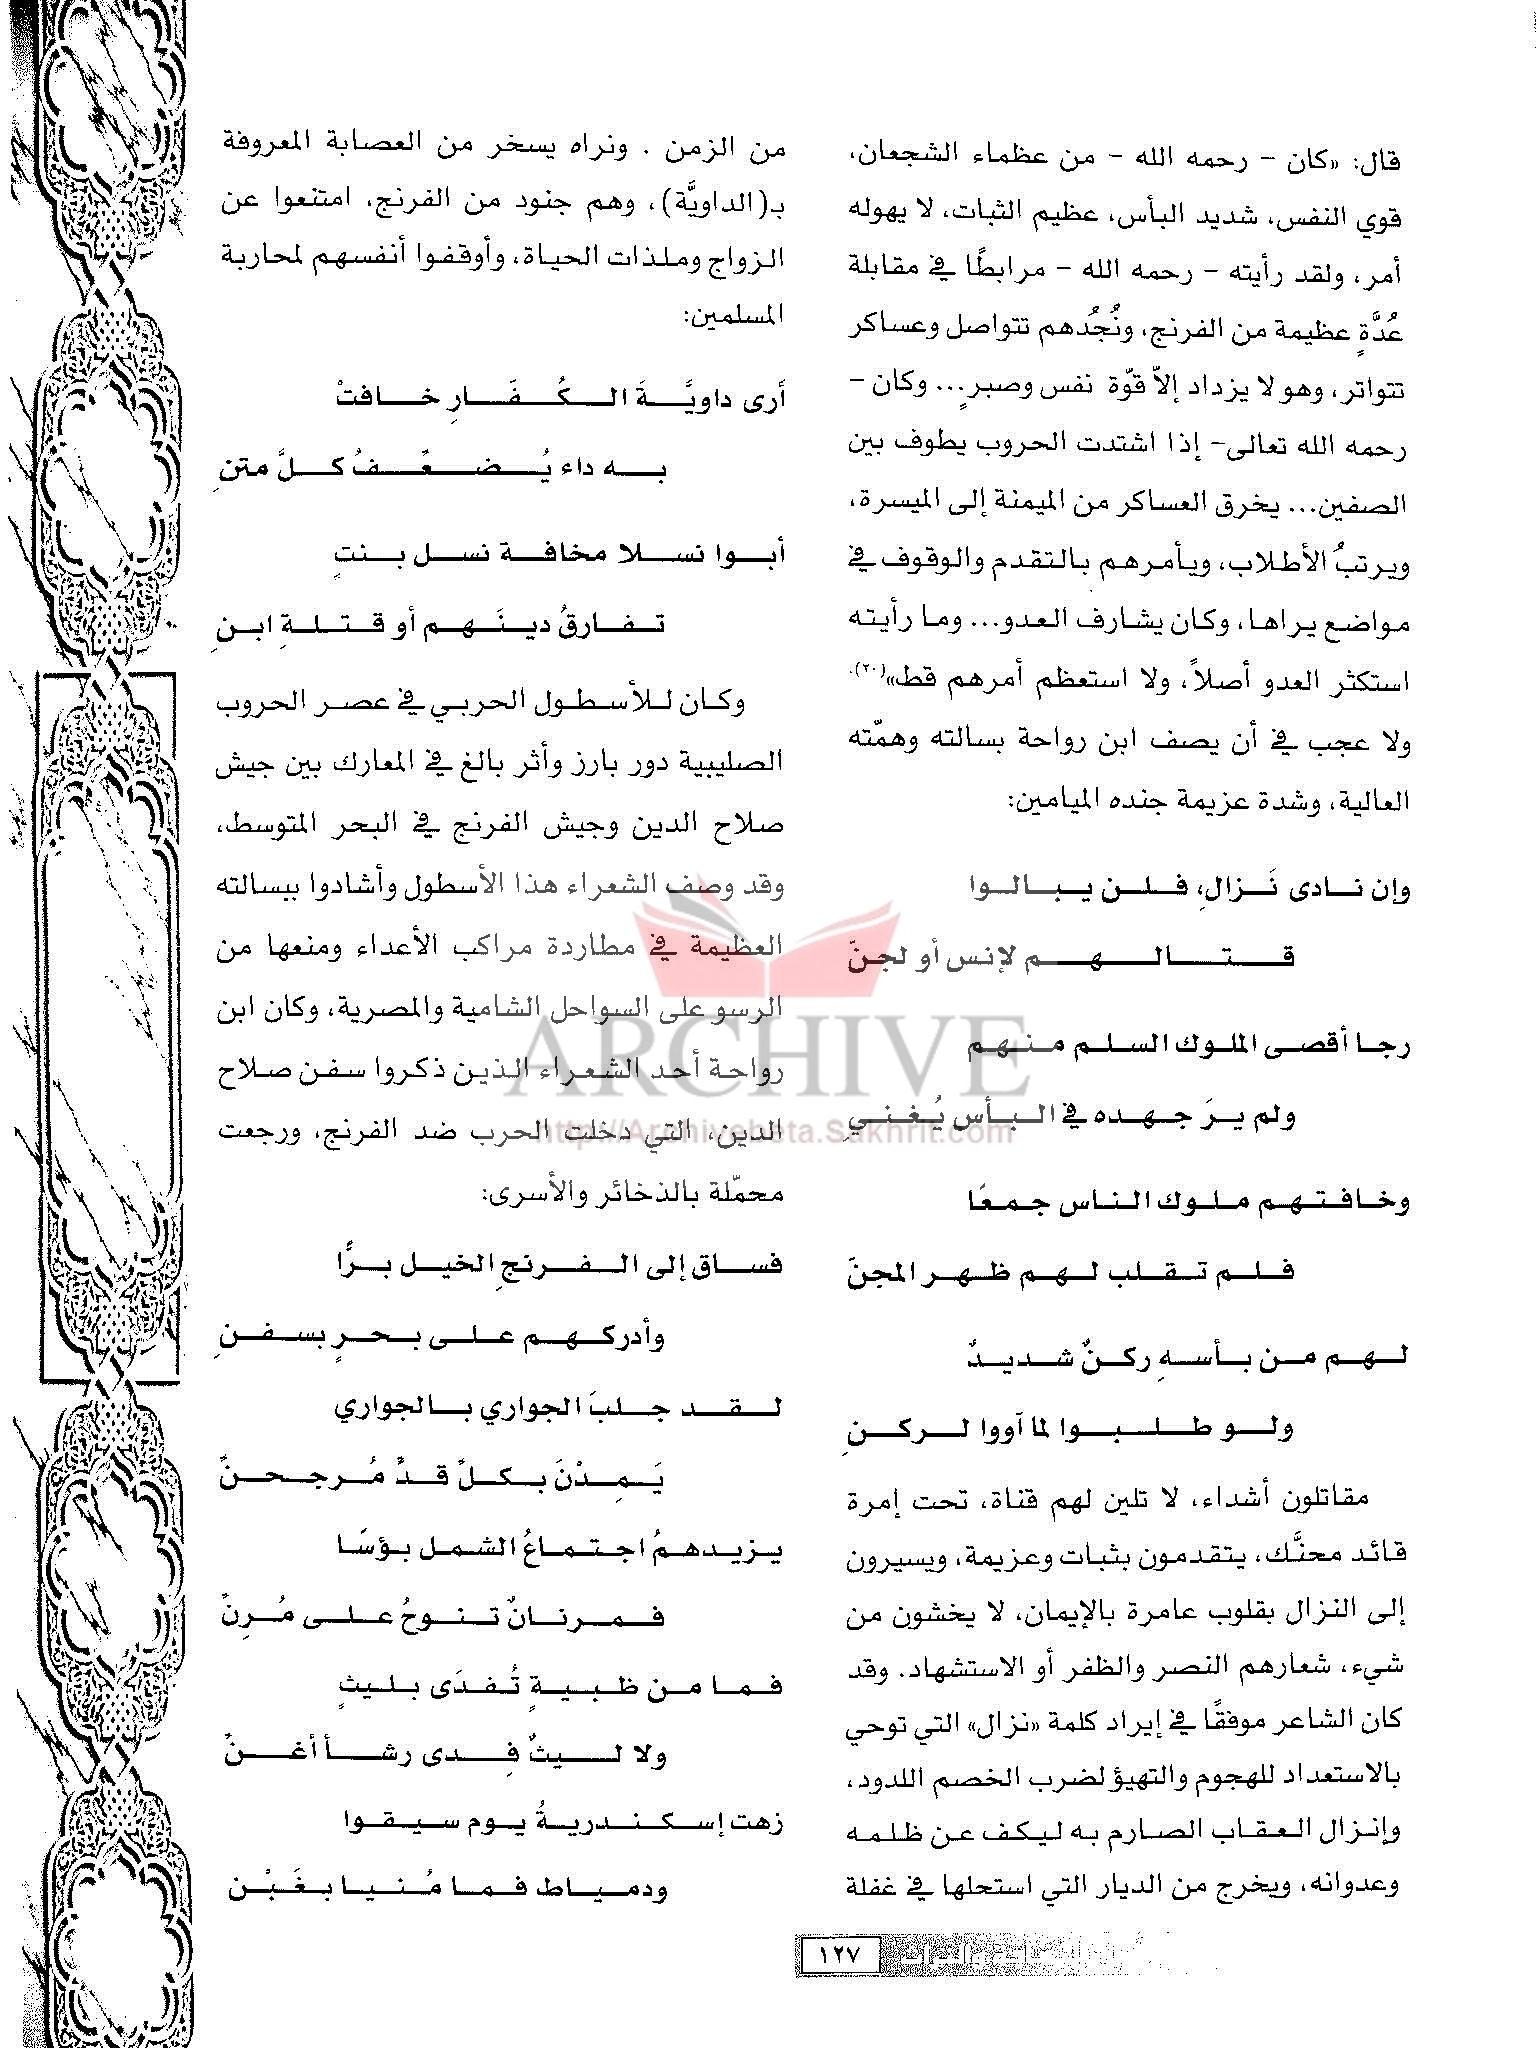 قال: «كان - رحمه الله - من عظماء الشجعان،
قوي النفس، شديد البأس، عظيم الثبات، لا يهوله
أمر، ولقد رأيته - رحمه الله - مرابطًا في مقابلة
عُدَّةٍ عظيمة من الفرنج، ونُجُدهم تتواصل وعساكر
تتواتر، وهو لا يزداد إلاّ قوّة نفس وصبرٍ... وكان -
رحمه الله تعالى- إذا اشتدت الحروب يطوف بين
الصفين... يخرق العساكر من الميمنة إلى الميسرة،
ويرتبُ الأطلاب، ويأمرهم بالتقدم والوقوف في
مواضع يراها، وكان يشارف العدو... وما رأيته
استكثر العدو أصلاً، ولا استعظم أمرهم قط»(٢٠).
ولا عجب في أن يصف ابن رواحة بسالته وهمّته
العالية، وشدة عزيمة جنده الميامين:
وإن نادى نَزالِ، فلن يبالوا
قتالهم لإنس أو لجنّ
رجا أقصى الملوك السلم منهم
ولم يرَ جهده في البأس يُغنيِ
وخافتهم ملوك الناس جمعًا
فلم تقلب لهم ظهر المجنّ
لهم من بأسهِ ركنٌ شديدٌ
ولو طلبوا لما آووا لركنِ
مقاتلون أشداء، لا تلين لهم قناة، تحت إمرة
قائد محنَّك، يتقدمون بثبات وعزيمة، ويسيرون
إلى النزال بقلوب عامرة بالإيمان، لا يخشون من
شيء، شعارهم النصر والظفر أو الاستشهاد. وقد
كان الشاعر موفقًا في إيراد كلمة «نزال» التي توحي
بالاستعداد للهجوم والتهيؤ لضرب الخصم اللدود،
وإنزال العقاب الصارم به ليكف عن ظلمه
وعدوانه، ويخرج من الديار التي استحلها في غفلة
من الزمن . ونراه يسخر من العصابة المعروفة
بـ(الداويَّة)، وهم جنود من الفرنج، امتنعوا عن
الزواج وملذات الحياة، وأوقفوا أنفسهم لمحاربة
المسلمين:
أرى داويَّةَ الكُفَارِ خافتْ
به داء يُضعِّفُ كلَّ متنِ
أبوا نسلا مخافة نسل بنتٍ
تفارقُ دينَهم أو قتلةِ ابنِ
وكان للأسطول الحربي في عصر الحروب
الصليبية دور بارز وأثر بالغ في المعارك بين جيش
صلاح الدين وجيش الفرنج في البحر المتوسط،
وقد وصف الشعراء هذا الأسطول وأشادوا ببسالته
العظيمة في مطاردة مراكب الأعداء ومنعها من
الرسو على السواحل الشامية والمصرية، وكان ابن
رواحة أحد الشعراء الذين ذكروا سفن صلاح
الدين، التي دخلت الحرب ضد الفرنج، ورجعت
محمّلة بالذخائر والأسرى:
فساق إلى الفرنجِ الخيل برًّا
وأدركهم على بحرٍ بسفنِ
لقد جلبَ الجواري بالجواري
يَمِدْنَ بكلِّ قدٍّ مُرجحنِّ
يزيدهمُ اجتماعُ الشمل بؤسًا
فمرنانٌ تنوحُ على مُرِنِّ
فما من ظبيةٍ تُفدَى بليثٍ
ولا ليثٌ فِدى رشأ أغنِّ
زهت إسكندريةُ يوم سيقوا
ودمياط فما مُنيا بغَبْنِ
ARCHIVE
http://Archivebeta.Sakhrit.com
١٢٧